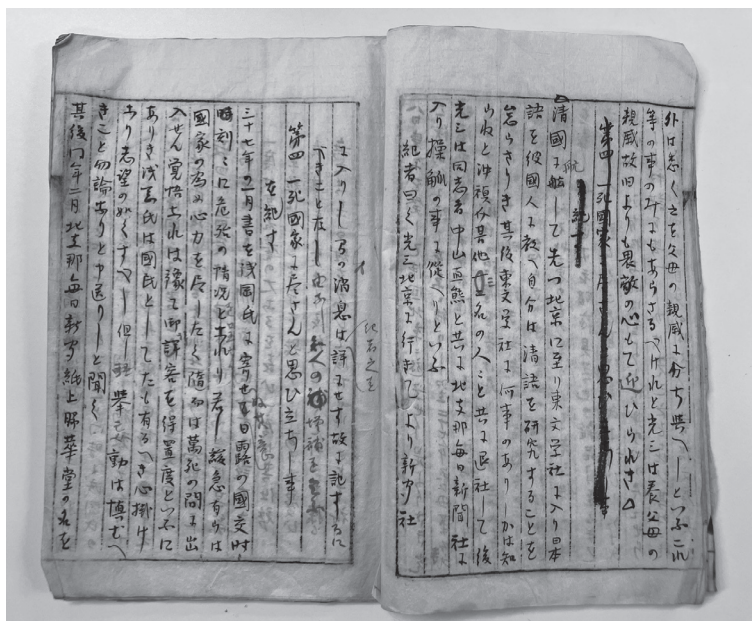 外は悉く之を父母の親戚に分ち與へしといふこれ
等の事のみにもあらさるへけれと光三は養父母の
親戚故旧よりも畏敬の心もて迎ひられき
第四 一死國家に尽さんと思ひ立ちし事
を記す
清國に航して先つ北京に至り東文学社に入り日本
語を彼國人に教へ自分は清語を研究することを
怠らさりき其後東文学社に何事のありしかは知
らねと沖禎介其他二三名の人々と共に退社して後
光三は同志者中山直熊と共に北支那毎日新聞社に
入り操觚の事に從へりといふ
記者曰く光三北京に行きてより新聞社
に入りし間の消息は詳ならす故に記するに
此若之を
第四 一死國家に尽さんと思ひ立ちし事
を記す
三十七年の一月書を浅岡氏に寄せて曰日露の國交時
時刻々に危殆の情況となれり若し緩急有らは
國家の為め心力を尽したく隨而は萬死の間に出
入せん覚悟なれは豫て御詳容を得置度といふに
ありき浅岡氏は國民としてたも有るへき心掛け
なり志望の如くすへし但し軽挙妄動は慎むへ
きこと勿論なりと申送りしと聞く
其後同年二月北支那毎日新聞紙上勝華堂の名を